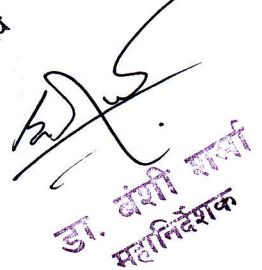 डा. बंशी शर्मा
महानिर्देशक